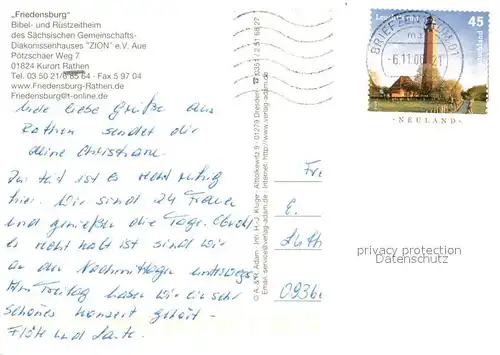 „Friedensburg"
Bibel- und Rüstzeitheim
des Sächsischen Gemeinschafts-
Diakonissenhauses "ZION" e.V. Aue
Pötzschaer Weg 7
01824 Kurort Rathen
Tel. 03 50 21/6 85 64 - Fax 5 97 04
www.Friedensburg-Rathen.de
Friedensburg@t-online.de
liebe Grüße aus
Rathen sendet dir
deine Christiane.
ist es recht ruhig
hier. Wir sind 24 Frauen
und genießen die Tage. Obwohl
es recht kalt ist sind wir
an den Nachmittagen unterwegs.
Am Freitag haben wir ein sehr
schönes Konzert gehört -
Flöte und Laute.
© A. & R. Adam - Inh. H.-J. Kluge - Altlockwitz 9 - 01279 Dresden ☎ 0351 / 2 51 68 27
Email: service@verlag-adam.de - Internet: http://www.verlag-adam.de
45
-6.11.06 - 21
- NEULAND -
Fr
E.
Luth
0936
privacy protection
Datenschutz